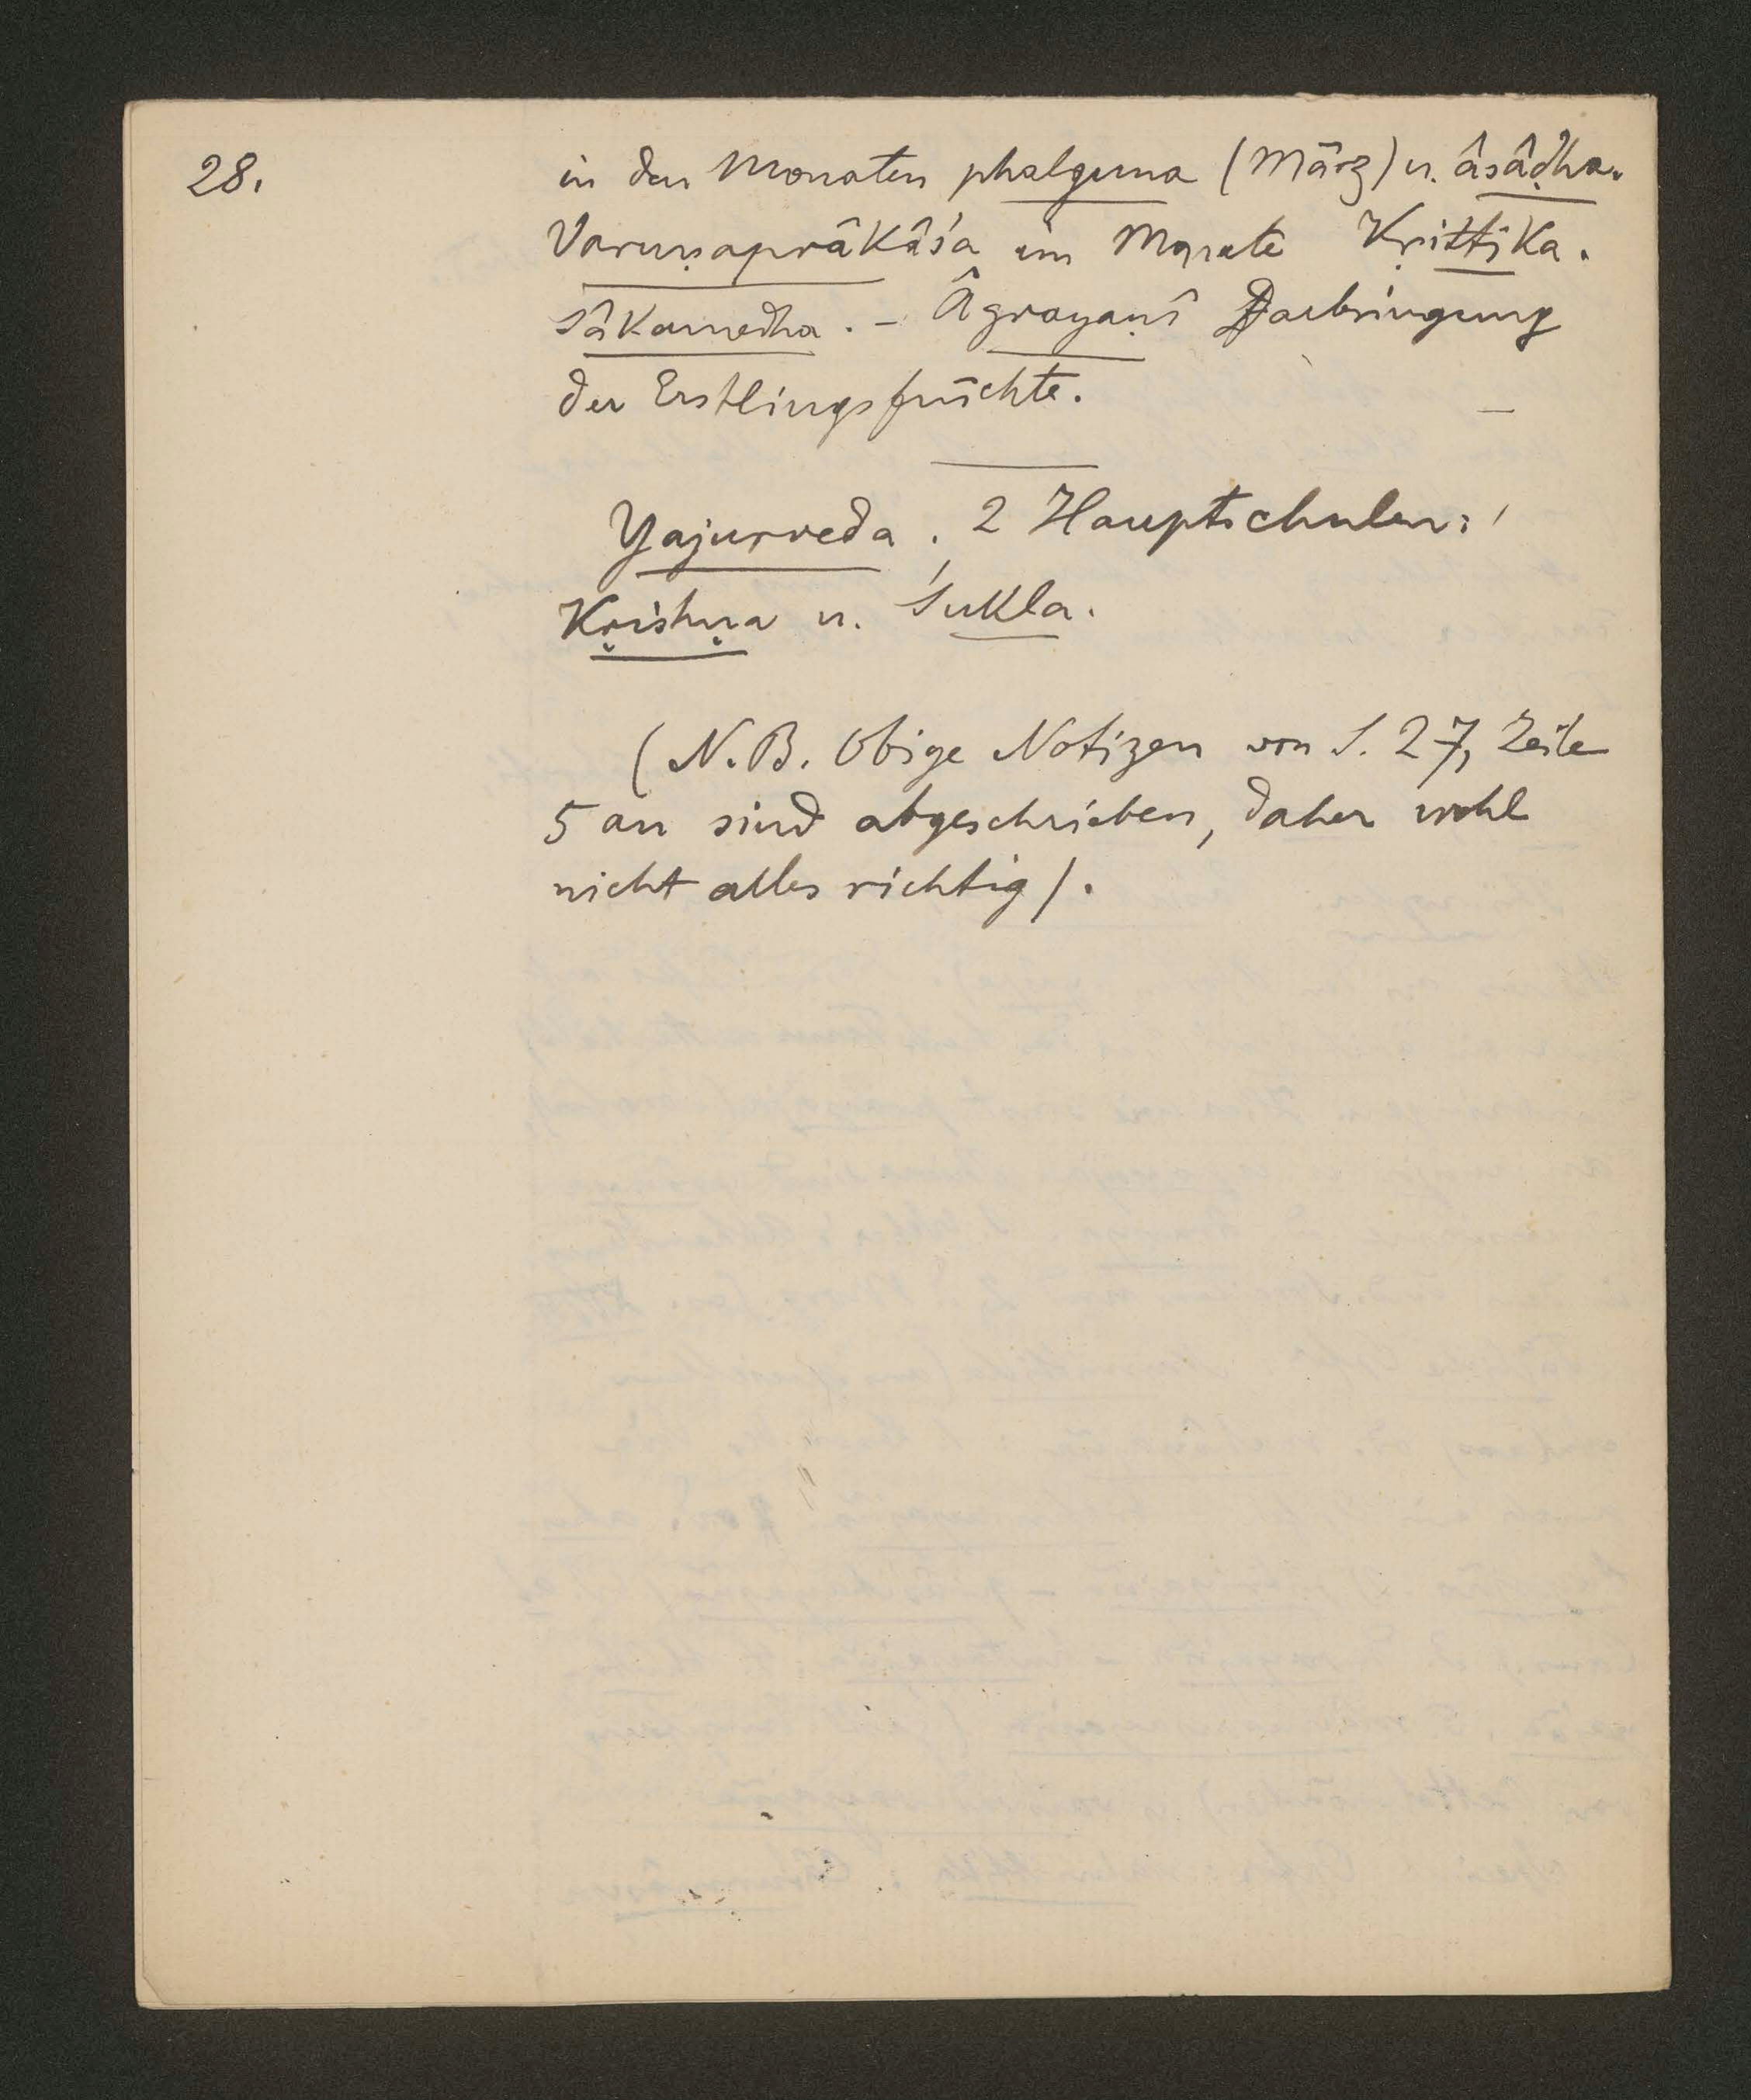 28.
in den Monaten phalguna (März) u. âsâḍha.
Varuṇaprâkâśa im Monate Kṛittika.
Sâkamedha. – Âgrayaṇî Darbringung
der Erstlingsfrüchte. –
Yajurveda. 2 Hauptschulen:
Kṛishṇa u. Śukla.
(N.B. Obige Notizen von S. 27, Zeile
5 an sind abgeschrieben, daher wohl
nicht alles richtig).